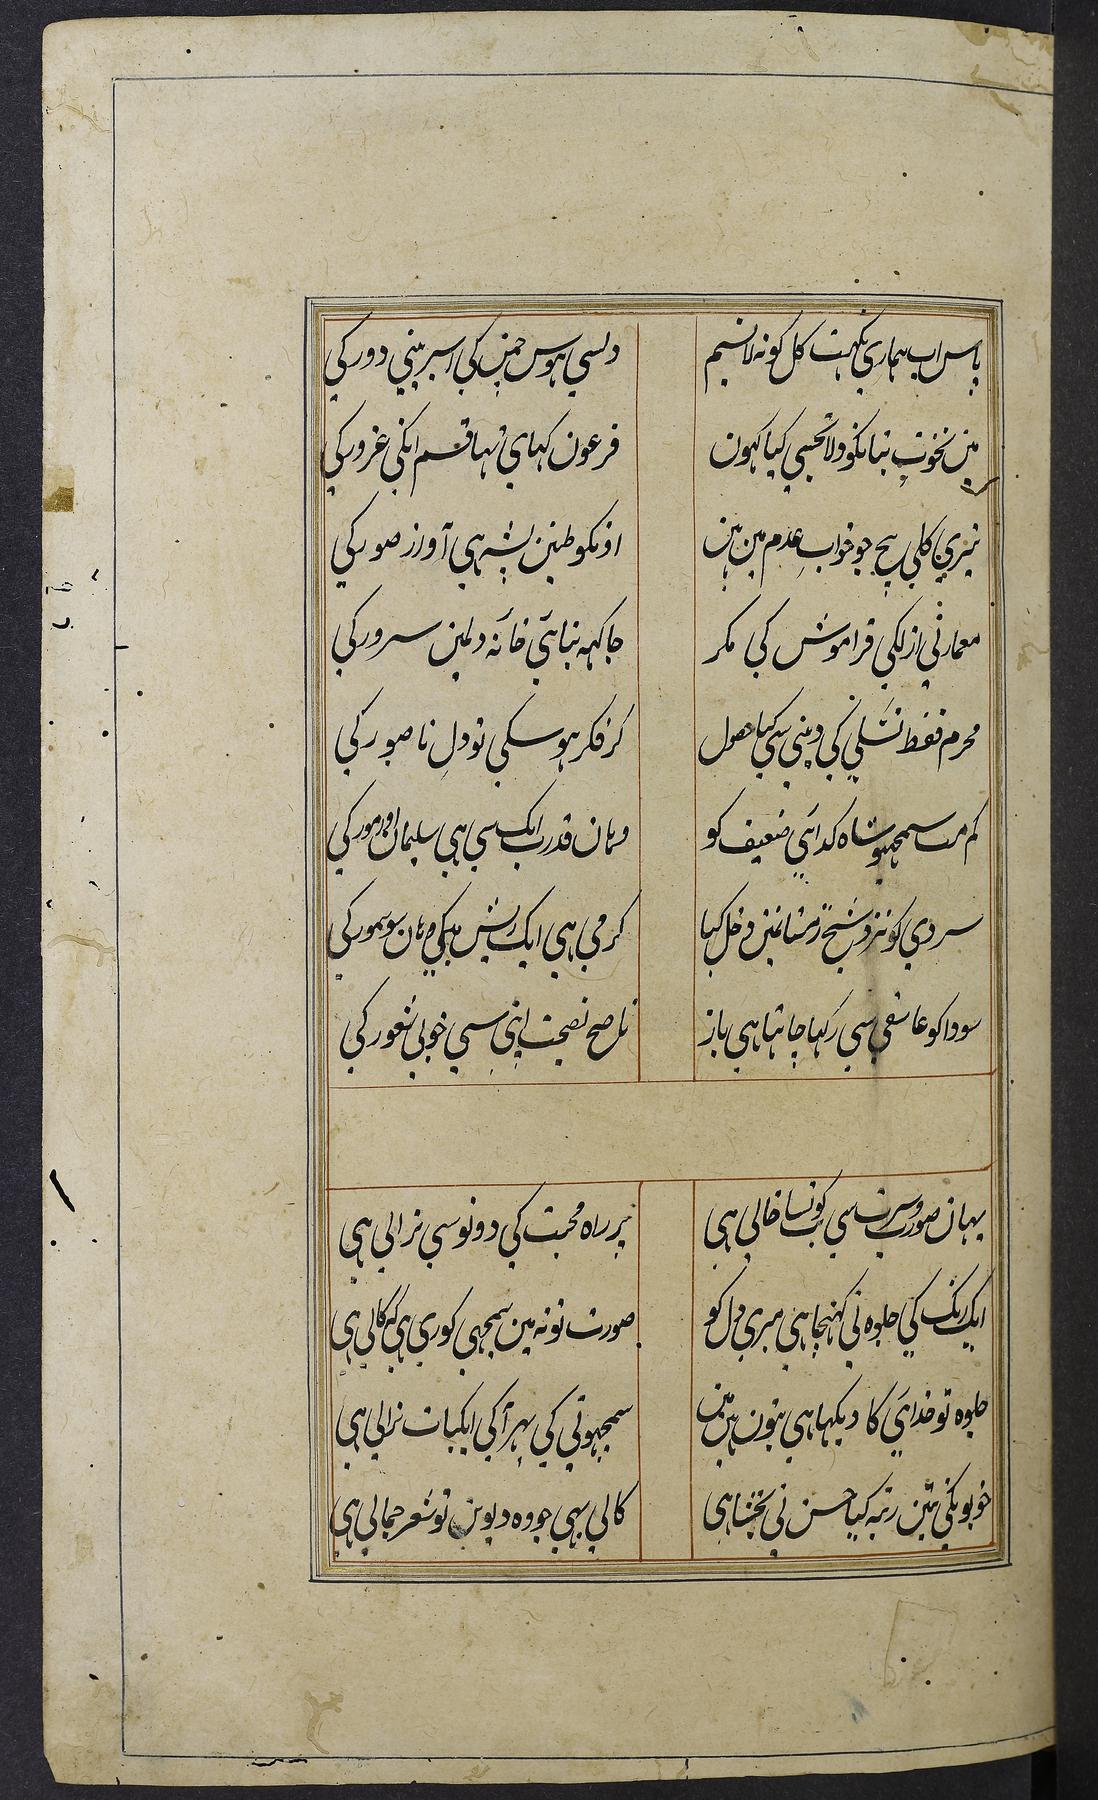 پاس اب ہماری نکہت کل کو نہ لا نسیم
دلسی ہوس چمن کی اسیر نبی دور کی
مین نخوت بتانکو دلا تجسی کیا کہون
فرعون کہای تہا قسم انکی غرور کی
تیری کلی بیچ جو خواب عدم مین ہین
اونکو طنین پشہ ہی آواز صور کی
معمار نی ازلکی فراموش کی مکر
جا کہہ بنا ہئی خانہ دلمین سرور کی
محرم فقط تسلی کی دینی سی کیا حصول
کر فکر ہوسکی تو دل نا صبور کی
کم مت سمجہیو شاہ کدائی ضعیف کو
وہان قدر ایک سی ہی سلیمان اور مور کی
سردی کو نزد شیخ زمستانمین دخل کیا
کرمی ہی ایک ریش مین کی وہان سو سمور کی
سودا کو عاشقی سی رکہا چاہتا ہی باز
ناصح نصیحت اپنی سی خوبی شعور کی
یہان صورت و سیرت سی بت کونسا خالی ہی
پر راہ محبت کی دونو سی نرالی ہی
ایک رنک کی جلوہ نی کہنچا ہی میری دل کو
صورت تو نہ مین سمجہی کوری ہی کہ کالی ہی
جلوہ تو خدائی کا دیکہا ہی بتون مین مین
سمجہوتی کی پہر اکی ایکبات نرالی ہی
خوبونکی تئین رتبہ کیا حسن نی بخشا ہی
کالی بہی جو وہ دیوین تو شعر جمالی ہی